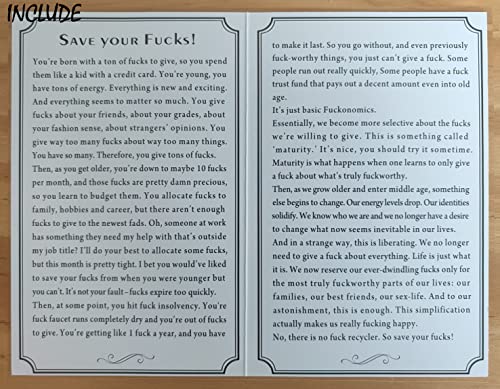 INCLUDE
SAVE YOUR FUCKS!
You're born with a ton of fucks to give, so you spend
them like a kid with a credit card. You're young, you
have tons of energy. Everything is new and exciting.
And everything seems to matter so much. You give
fucks about your friends, about your grades, about
your fashion sense, about strangers' opinions. You
give way too many fucks about way too many things.
You have so many. Therefore, you give tons of fucks.
Then, as you get older, you're down to maybe 10 fucks
per month, and those fucks are pretty damn precious,
so you learn to budget them. You allocate fucks to
family, hobbies and career, but there aren't enough
fucks to give to the newest fads. Oh, someone at work
has something they need my help with that's outside
my job title? I'll do your best to allocate some fucks,
but this month is pretty tight. I bet you would've liked
to save your fucks from when you were younger but
you can't. It's not your fault–fucks expire too quickly.
Then, at some point, you hit fuck insolvency. You're
fuck faucet runs completely dry and you're out of fucks
to give. You're getting like 1 fuck a year, and you have
to make it last. So you go without, and even previously
fuck-worthy things, you just can't give a fuck. Some
people run out really quickly, Some people have a fuck
trust fund that pays out a decent amount even into old
age.
It's just basic Fuckonomics.
Essentially, we become more selective about the fucks
we're willing to give. This is something called
'maturity.' It's nice, you should try it sometime.
Maturity is what happens when one learns to only give
a fuck about what's truly fuckworthy.
Then, as we grow older and enter middle age, something
else begins to change. Our energy levels drop. Our identities
solidify. We know who we are and we no longer have a desire
to change what now seems inevitable in our lives.
And in a strange way, this is liberating. We no longer
need to give a fuck about everything. Life is just what
it is. We now reserve our ever-dwindling fucks only for
the most truly fuckworthy parts of our lives: our
families, our best friends, our sex-life. And to our
astonishment, this is enough. This simplification
actually makes us really fucking happy.
No, there is no fuck recycler. So save your fucks!